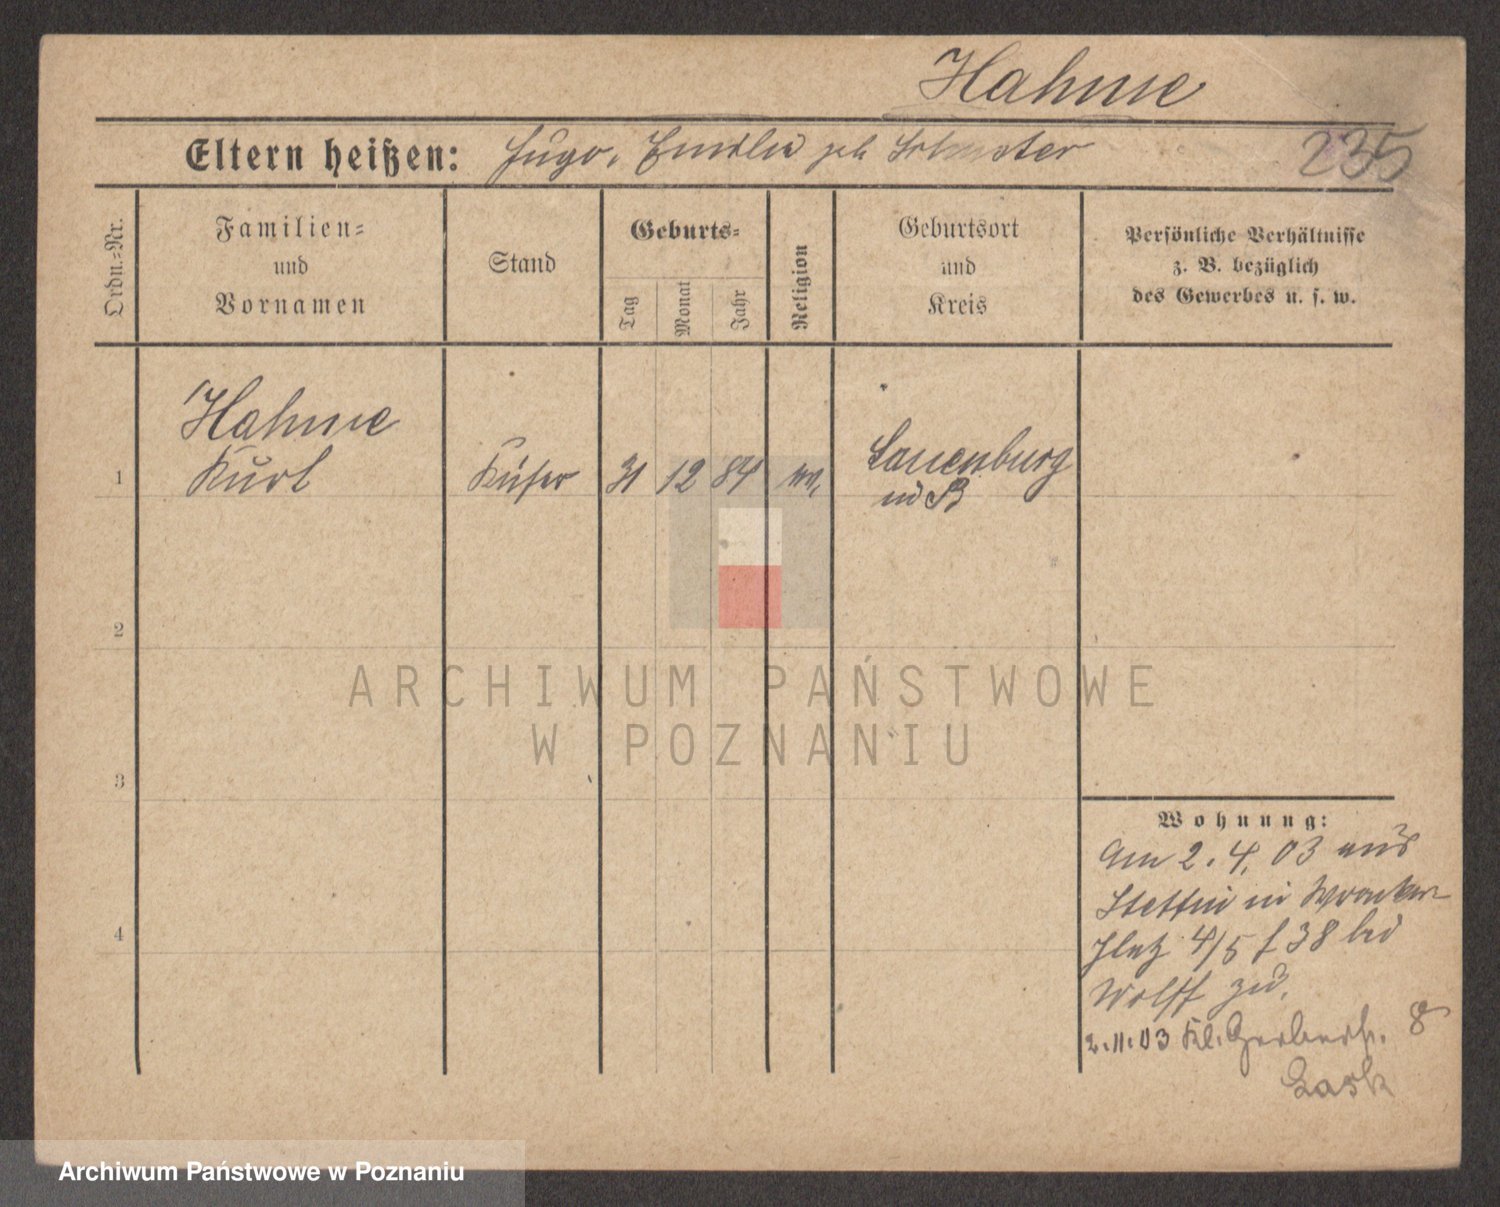 Hahme
235
Eltern heißen: Hugo, Emilie geb Schuster
Ordn.-Nr.
Familien-
und
Vornamen
Stand
Geburts-
Tag
Monat
Jahr
Religion
Geburtsort
und
Kreis
Persönliche Verhältnisse
z. B. bezüglich
des Gewerbes u. s. w.
1
Hahme
Kurt
Küfer
31
12
84
Lauenburg
2
3
4
Wohnung:
Am 2. 4. 03 aus
Stettin in Wronker
Platz 4/5 f 38 bei
Wolff zu.
2.11.03 Kl. Gerberstr. 8
Lask
ARCHIWUM PAŃSTWOWE
W POZNANIU
Archiwum Państwowe w Poznaniu